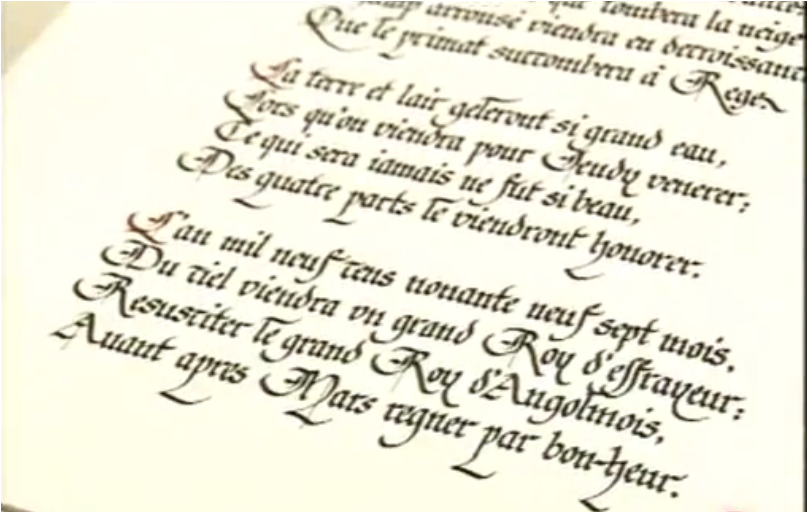 que tombera la neige
arrousé viendra en decroissanc
Que le primat succombera à Rege.
La terre et lair geleront si grand eau,
Lors qu'on viendra pour Jeudy venerer;
Ce qui sera iamais ne fut si beau,
Des quatre parts le viendront honorer.
L'an mil neuf cens nonante neuf sept mois.
Du ciel viendra vn grand Roy d'effrayeur:
Resusciter le grand Roy d'Angolmois,
Auant apres Mars regner par bon-heur.